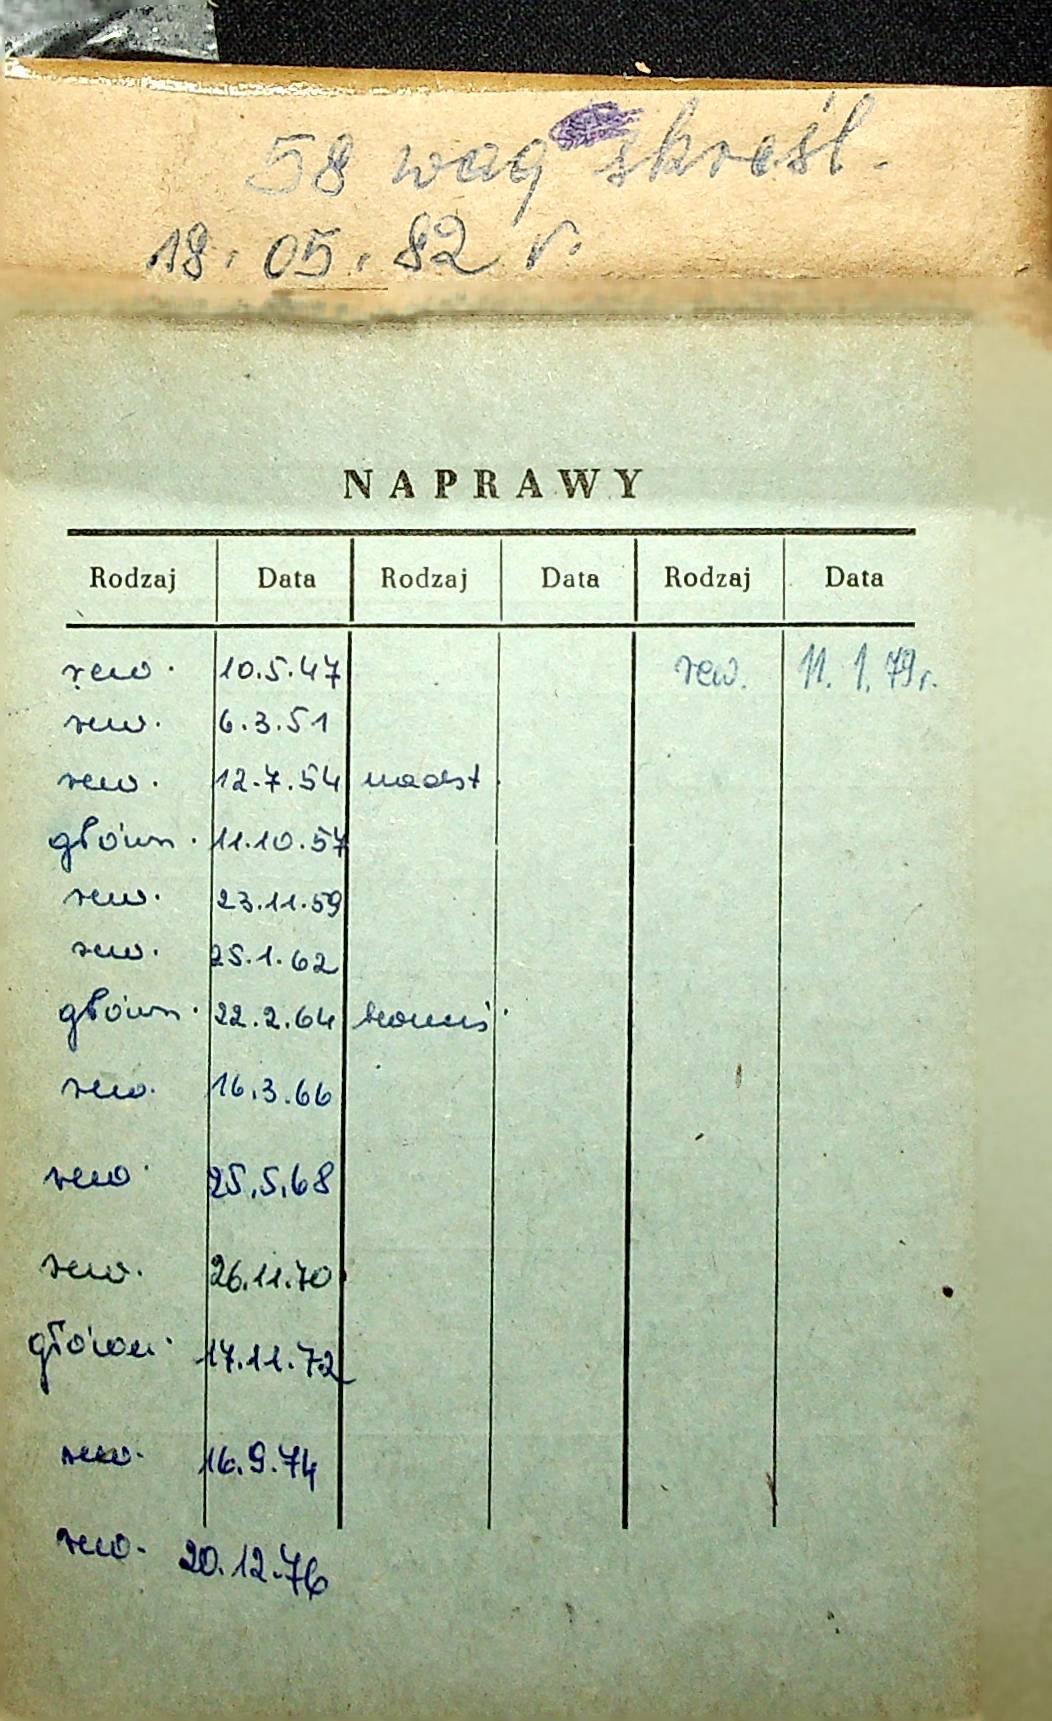 58 wag skreśl.
18.05.82 r.
NAPRAWY
Rodzaj Data Rodzaj Data Rodzaj Data
rew. 10.5.47 rew. 11.1.79r.
rew. 6.3.51
rew. 12.7.54 nadst.
główn. 11.10.57
rew. 23.11.59
rew. 25.1.62
główn. 22.2.64
rew. 16.3.66
rew. 25.5.68
rew. 26.11.70
główn. 17.11.72
rew. 16.9.74
rew. 20.12.76